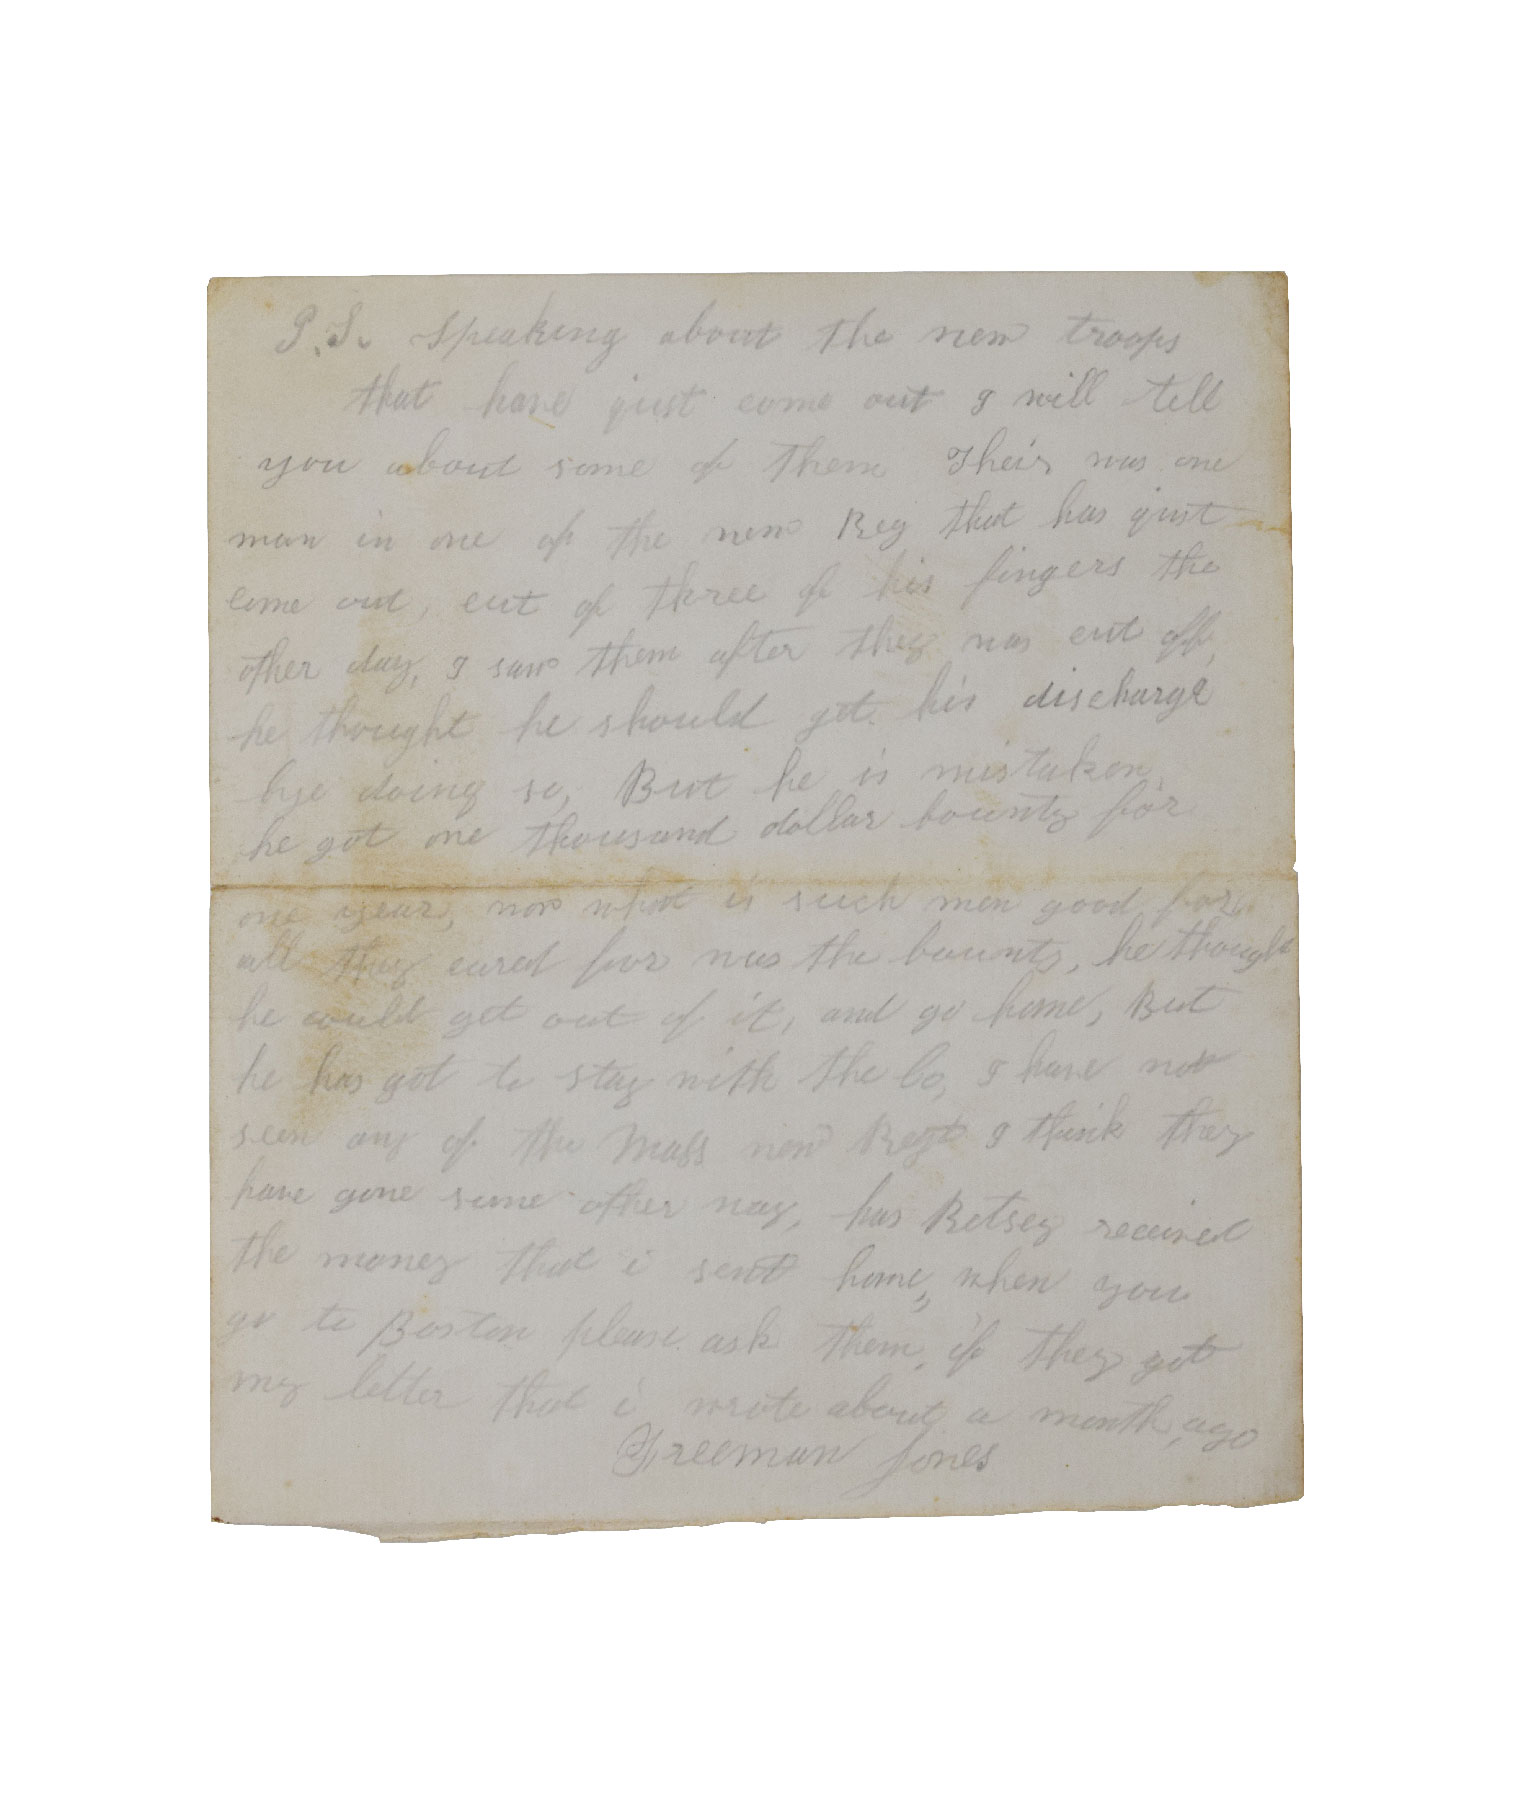 P.S. Speaking about the new troops
that have just come out I will tell
you about some of them Their was one
man in one of the new Reg that has just
come out, cut of three of his fingers the
other day, I saw them after they was cut off,
he thought he should get his discharge
bye doing so, But he is mistaken,
he got one thousand dollar bounty for
one year, now what is such men good for,
all they cared for was the bounty, he thought
he could get out of it, and go home, But
he has got to stay with the Co, I have not
seen any of the Mass new Regt I think they
have gone some other way, has Betsey received
the money that i sent home, when you
go to Boston please ask them, if they got
my letter that i wrote about a month, ago
Freeman Jones